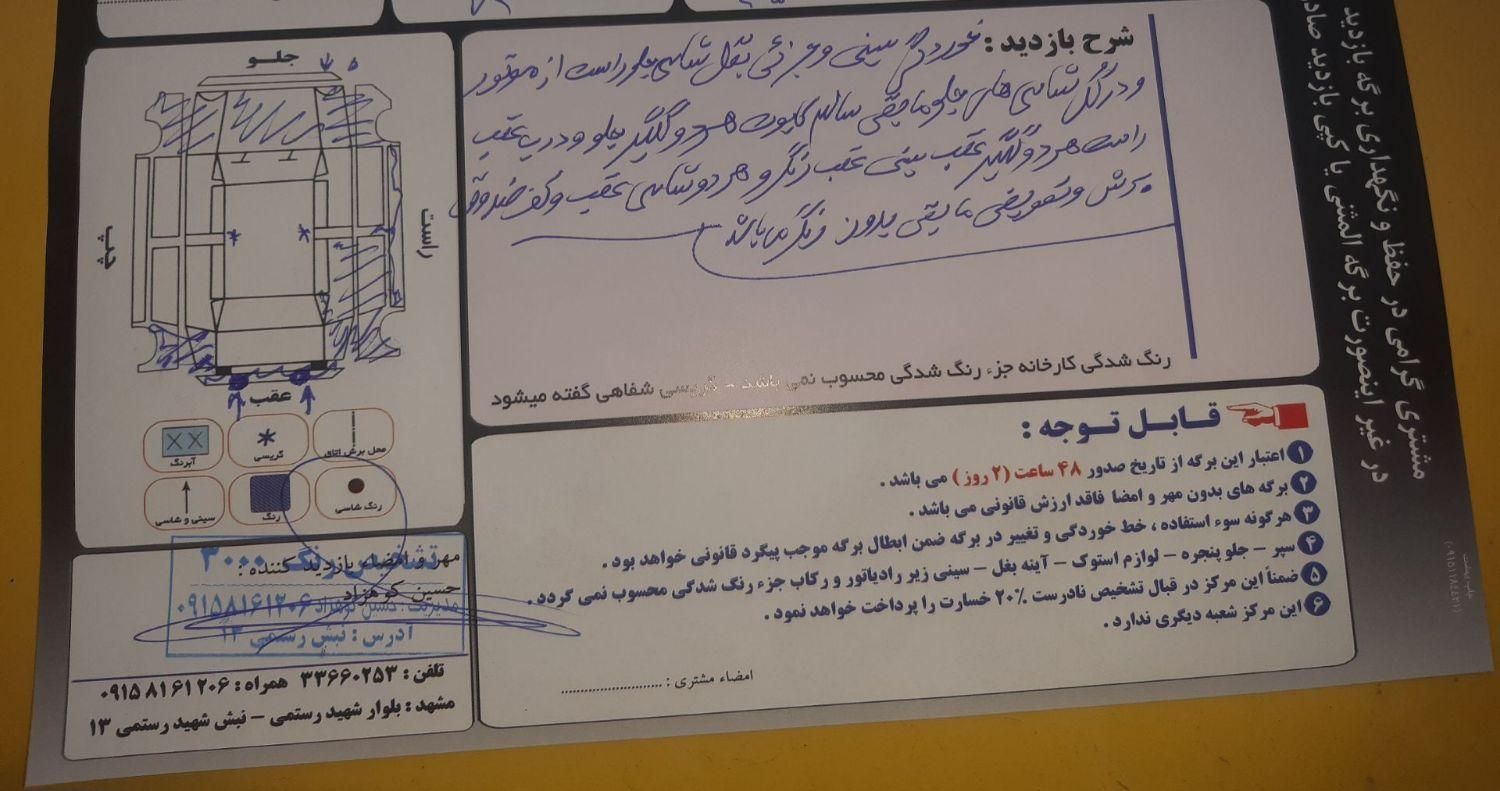 جلو
راست
چپ
عقب
محل برش اتاق
کریسی
آبرنگ
رنگ شاسی
رنگ
سینی و شاسی
شرح بازدید : خوردگی سینی و جزئی بغل شاسی جلو راست از موتور
و در کل شاسی های جلو مابقی سالم کاپوت هر دو گلگیر جلو و درب عقب
راست هر دو گلگیر عقب سینی عقب رنگ و هر دو شاسی عقب و کف صندوق
برش و تعویضی مابقی بدون رنگ میباشد
رنگ شدگی کارخانه جزء رنگ شدگی محسوب نمی باشد - کریسی شفاهی گفته میشود
قابل توجه :
۱ اعتبار این برگه از تاریخ صدور ۴۸ ساعت (۲ روز) می باشد .
۲ برگه های بدون مهر و امضا فاقد ارزش قانونی می باشد .
۳ هرگونه سوء استفاده ، خط خوردگی و تغییر در برگه ضمن ابطال برگه موجب پیگرد قانونی خواهد بود .
۴ سپر – جلو پنجره – لوازم استوک – آینه بغل – سینی زیر رادیاتور و رکاب جزء رنگ شدگی محسوب نمی گردد .
۵ ضمناً این مرکز در قبال تشخیص نادرست ۲۰٪ خسارت را پرداخت خواهد نمود .
۶ این مرکز شعبه دیگری ندارد .
امضاء مشتری : ..........................
مهر و امضاء بازدید کننده :
حسین کوهزاد
تشخیص رنگ ۳۰۰۰
مدیریت : حسین کوهزاد ۰۹۱۵۸۱۶۱۲۰۶
آدرس : نبش رستمی ۱۳
تلفن : ۳۳۶۶۰۲۵۳ همراه : ۰۹۱۵۸۱۶۱۲۰۶
مشهد : بلوار شهید رستمی – نبش شهید رستمی ۱۳
مشتری گرامی در حفظ و نگهداری برگه بازدید
در غیر اینصورت برگه المثنی یا کپی بازدید صادر